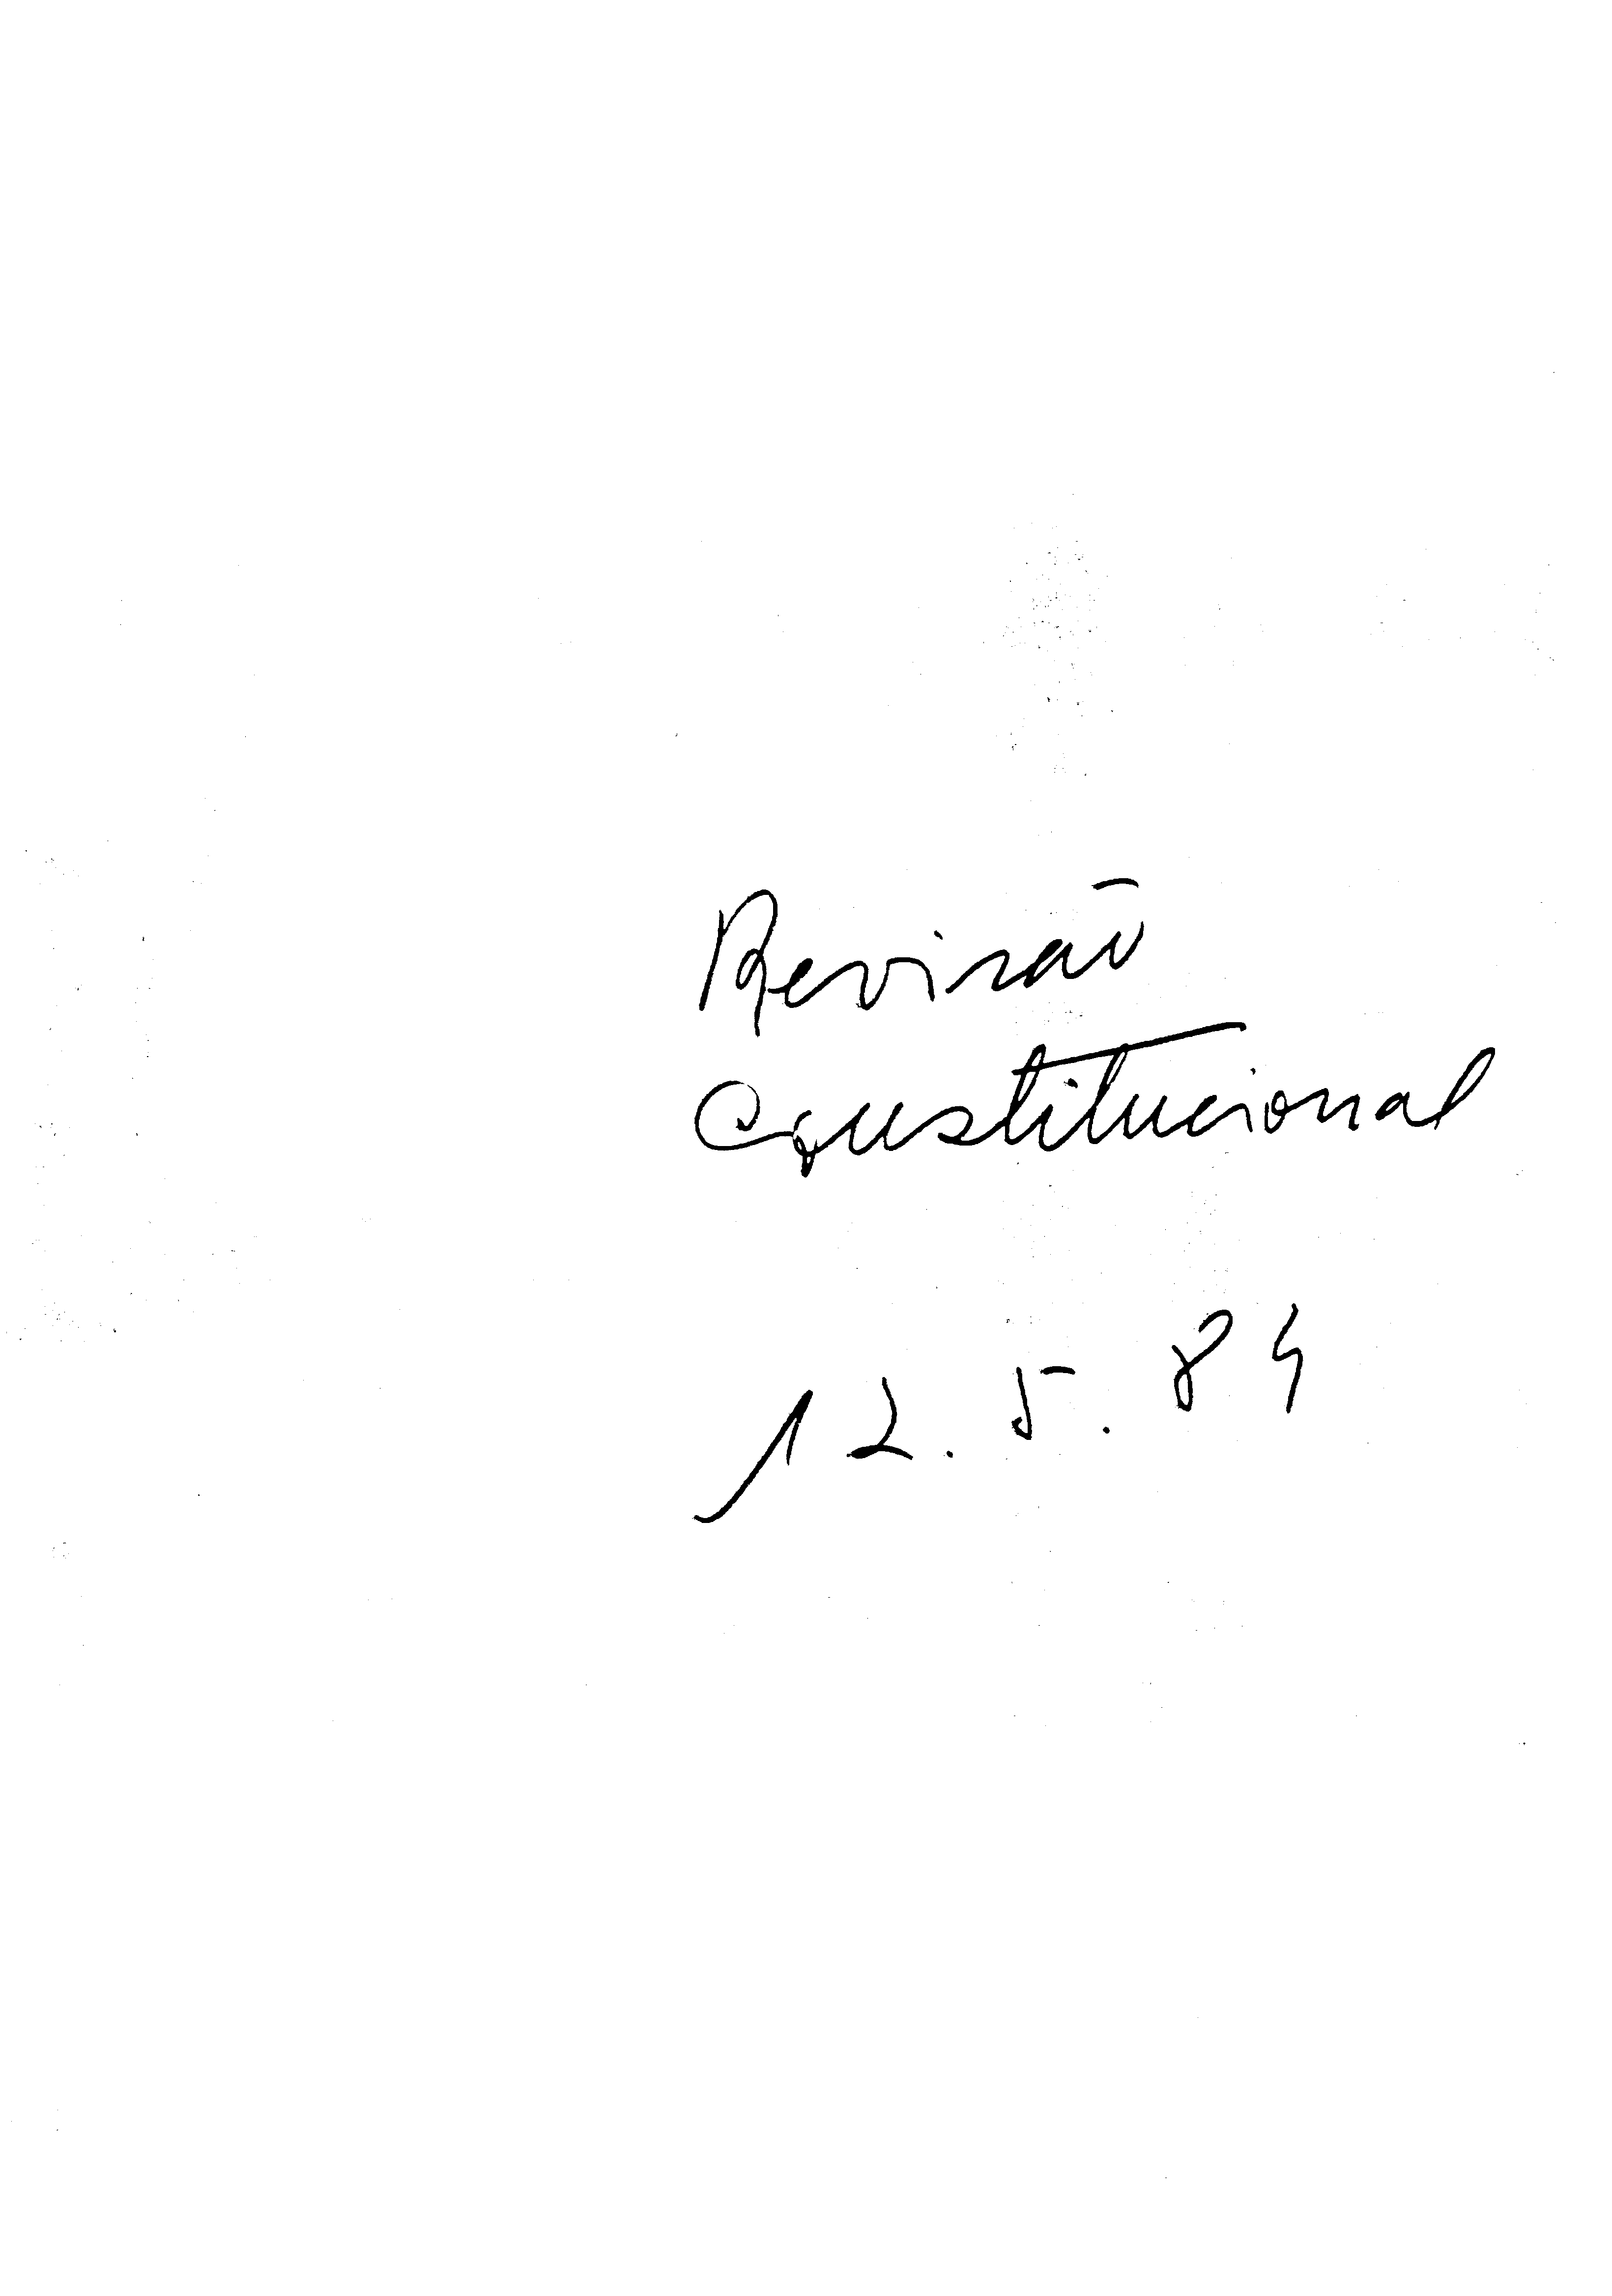 Revisão
Constitucional
12.5.84